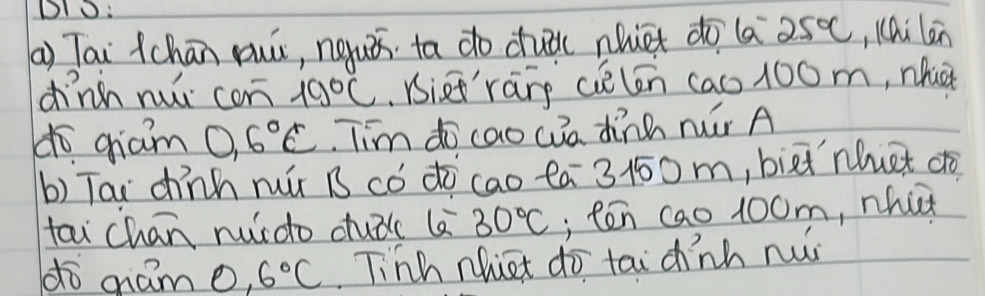 a) Tại chân núi, người ta đo được nhiệt độ là 25°C, khi lên
đỉnh núi còn 19°C. Biết rằng cứ lên cao 100m, nhiệt
độ giảm 0,6°C. Tìm độ cao của đỉnh núi A
b) Tại đỉnh núi B có độ cao là 3150m, biết nhiệt độ
tại chân núi đo được là 30°C; lên cao 100m, nhiệt
độ giảm 0,6°C. Tính nhiệt độ tại đỉnh núi